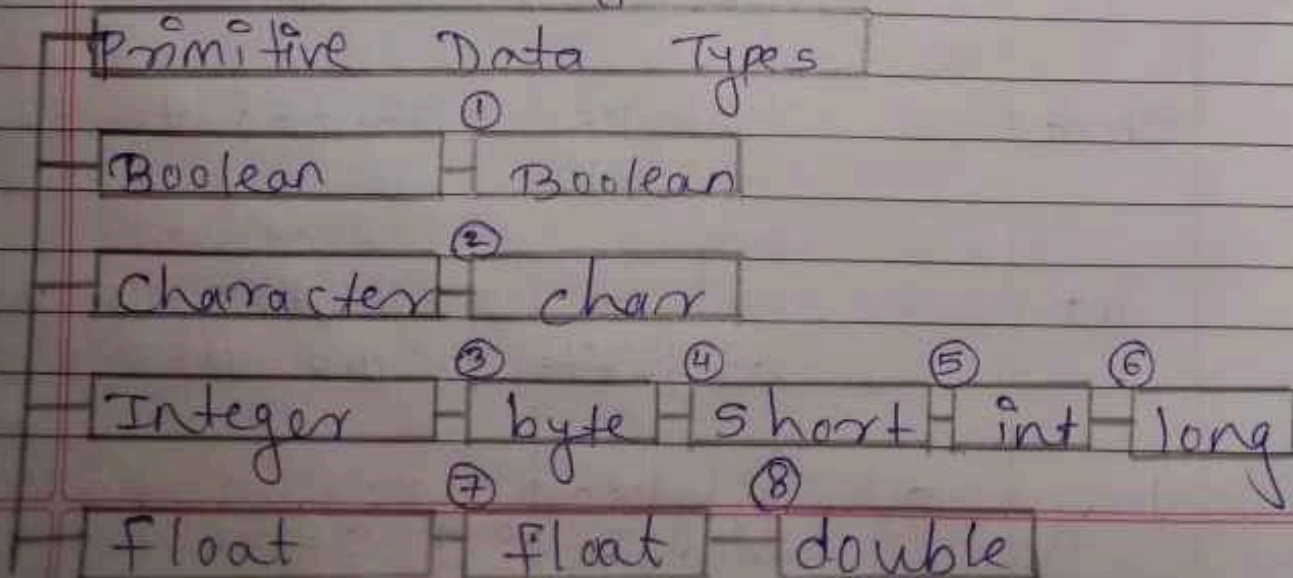 Primitive Data Types
①
Boolean Boolean
②
Character char
③ ④ ⑤ ⑥
Integer byte short int long
⑦ ⑧
float float double